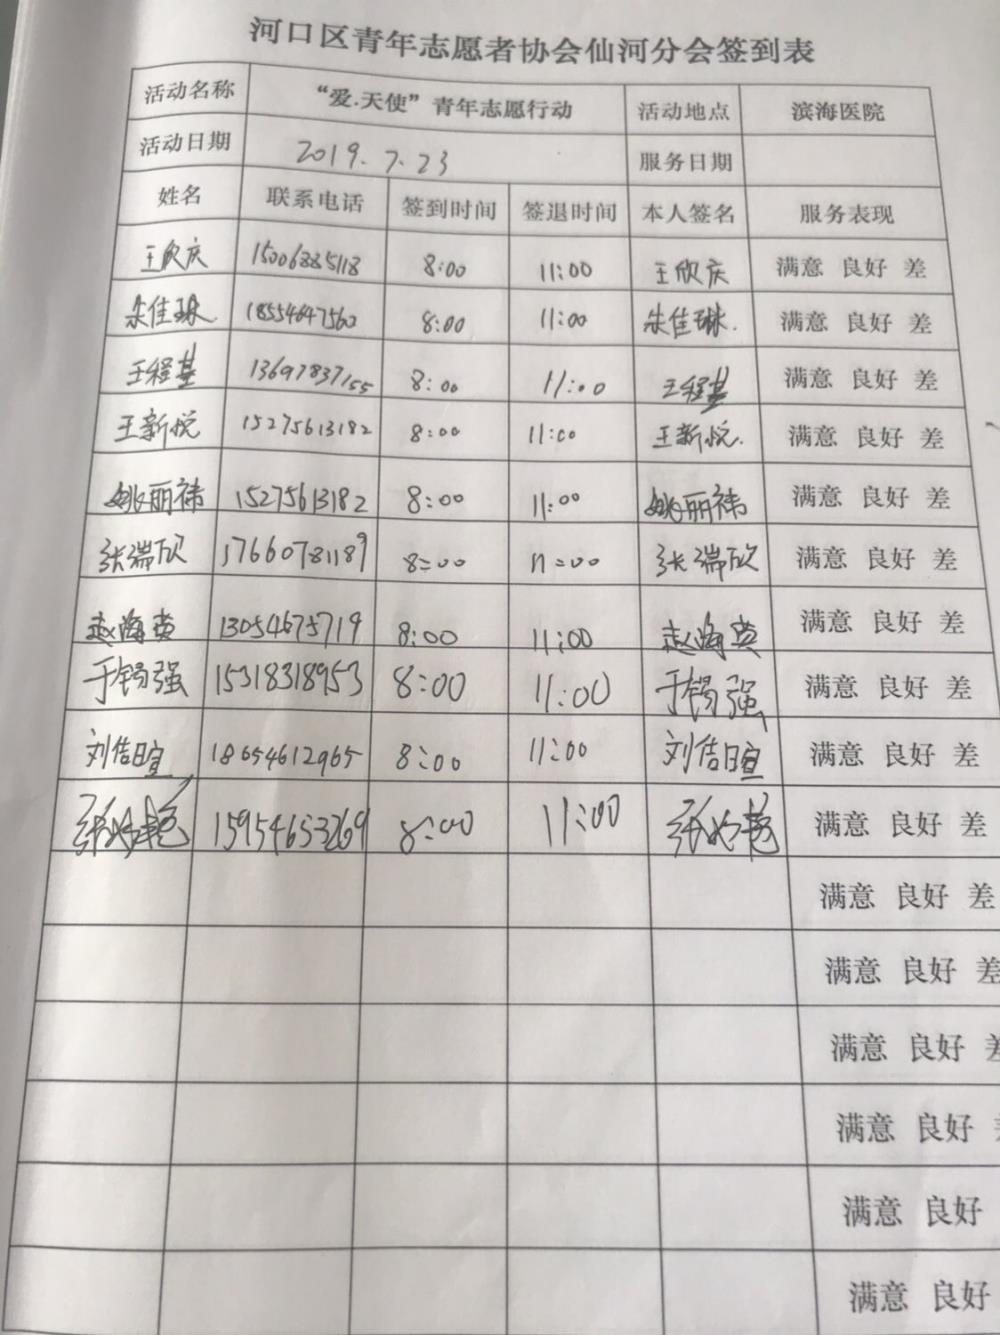 河口区青年志愿者协会仙河分会签到表
活动名称 “爱.天使”青年志愿行动 活动地点 滨海医院
活动日期 2019.7.23 服务日期
姓名 联系电话 签到时间 签退时间 本人签名 服务表现
王欣庆 15006885118 8:00 11:00 王欣庆 满意 良好 差
朱佳琳 18554647560 8:00 11:00 朱佳琳. 满意 良好 差
王程基 13697837155 8:00 11:00 王程基 满意 良好 差
王新悦 15275613182 8:00 11:00 王新悦. 满意 良好 差
姚丽祎 15275613182 8:00 11:00 姚丽祎 满意 良好 差
张瑞欣 17660781189 8:00 11:00 张瑞欣 满意 良好 差
赵海英 13054675719 8:00 11:00 赵海英 满意 良好 差
于锡强 15318318953 8:00 11:00 于锡强 满意 良好 差
刘佶暄 18654612965 8:00 11:00 刘佶暄 满意 良好 差
15954653269 8:00 11:00 满意 良好 差
满意 良好 差
满意 良好 差
满意 良好 差
满意 良好
满意 良好
满意 良好